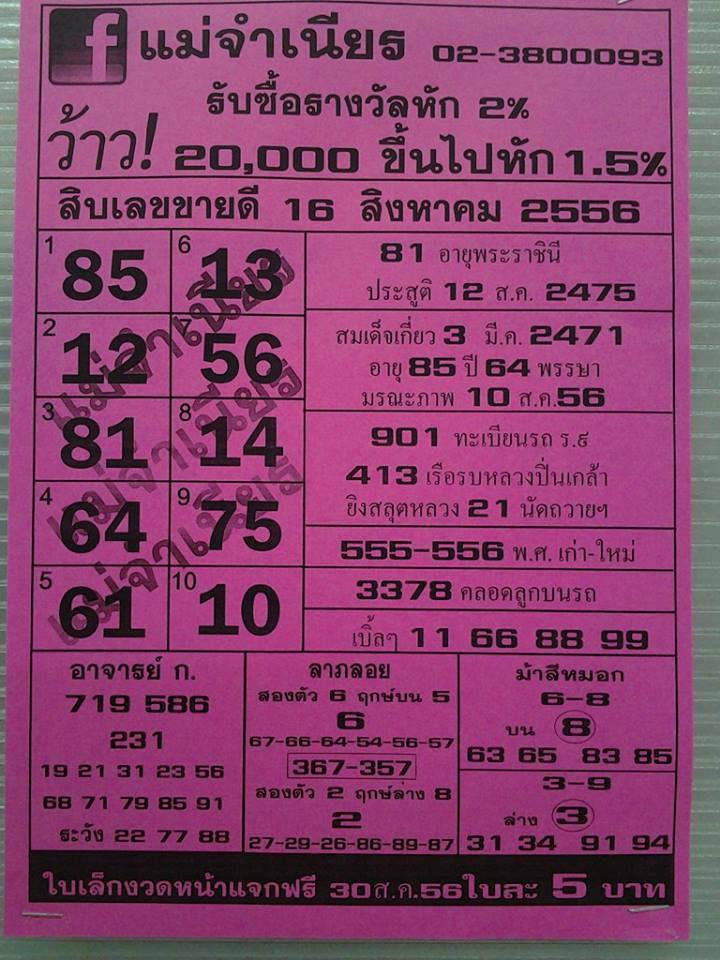 f แม่จำเนียร 02-3800093
รับซื้อรางวัลหัก 2%
ว้าว! 20,000 ขึ้นไปหัก 1.5%
สิบเลขขายดี 16 สิงหาคม 2556
1 85 6 13
2 12 7 56
3 81 8 14
4 64 9 75
5 61 10 10
แม่จำเนียร
แม่จำเนียร
แม่จำเนียร
81 อายุพระราชินี
ประสูติ 12 ส.ค. 2475
สมเด็จเกี่ยว 3 มี.ค. 2471
อายุ 85 ปี 64 พรรษา
มรณะภาพ 10 ส.ค.56
901 ทะเบียนรถ ร.๙
413 เรือรบหลวงปิ่นเกล้า
ยิงสลุตหลวง 21 นัดถวายฯ
555-556 พ.ศ. เก่า-ใหม่
3378 คลอดลูกบนรถ
เบิ้ลๆ 11 66 88 99
อาจารย์ ก.
719 586
231
19 21 31 23 56
68 71 79 85 91
ระวัง 22 77 88
ลาภลอย
สองตัว 6 ฤกษ์บน 5
6
67-66-64-54-56-57
367-357
สองตัว 2 ฤกษ์ล่าง 8
2
27-29-26-86-89-87
ม้าสีหมอก
6-8
บน 8
63 65 83 85
3-9
ล่าง 3
31 34 91 94
ใบเล็กงวดหน้าแจกฟรี 30ส.ค.56ใบละ 5 บาท